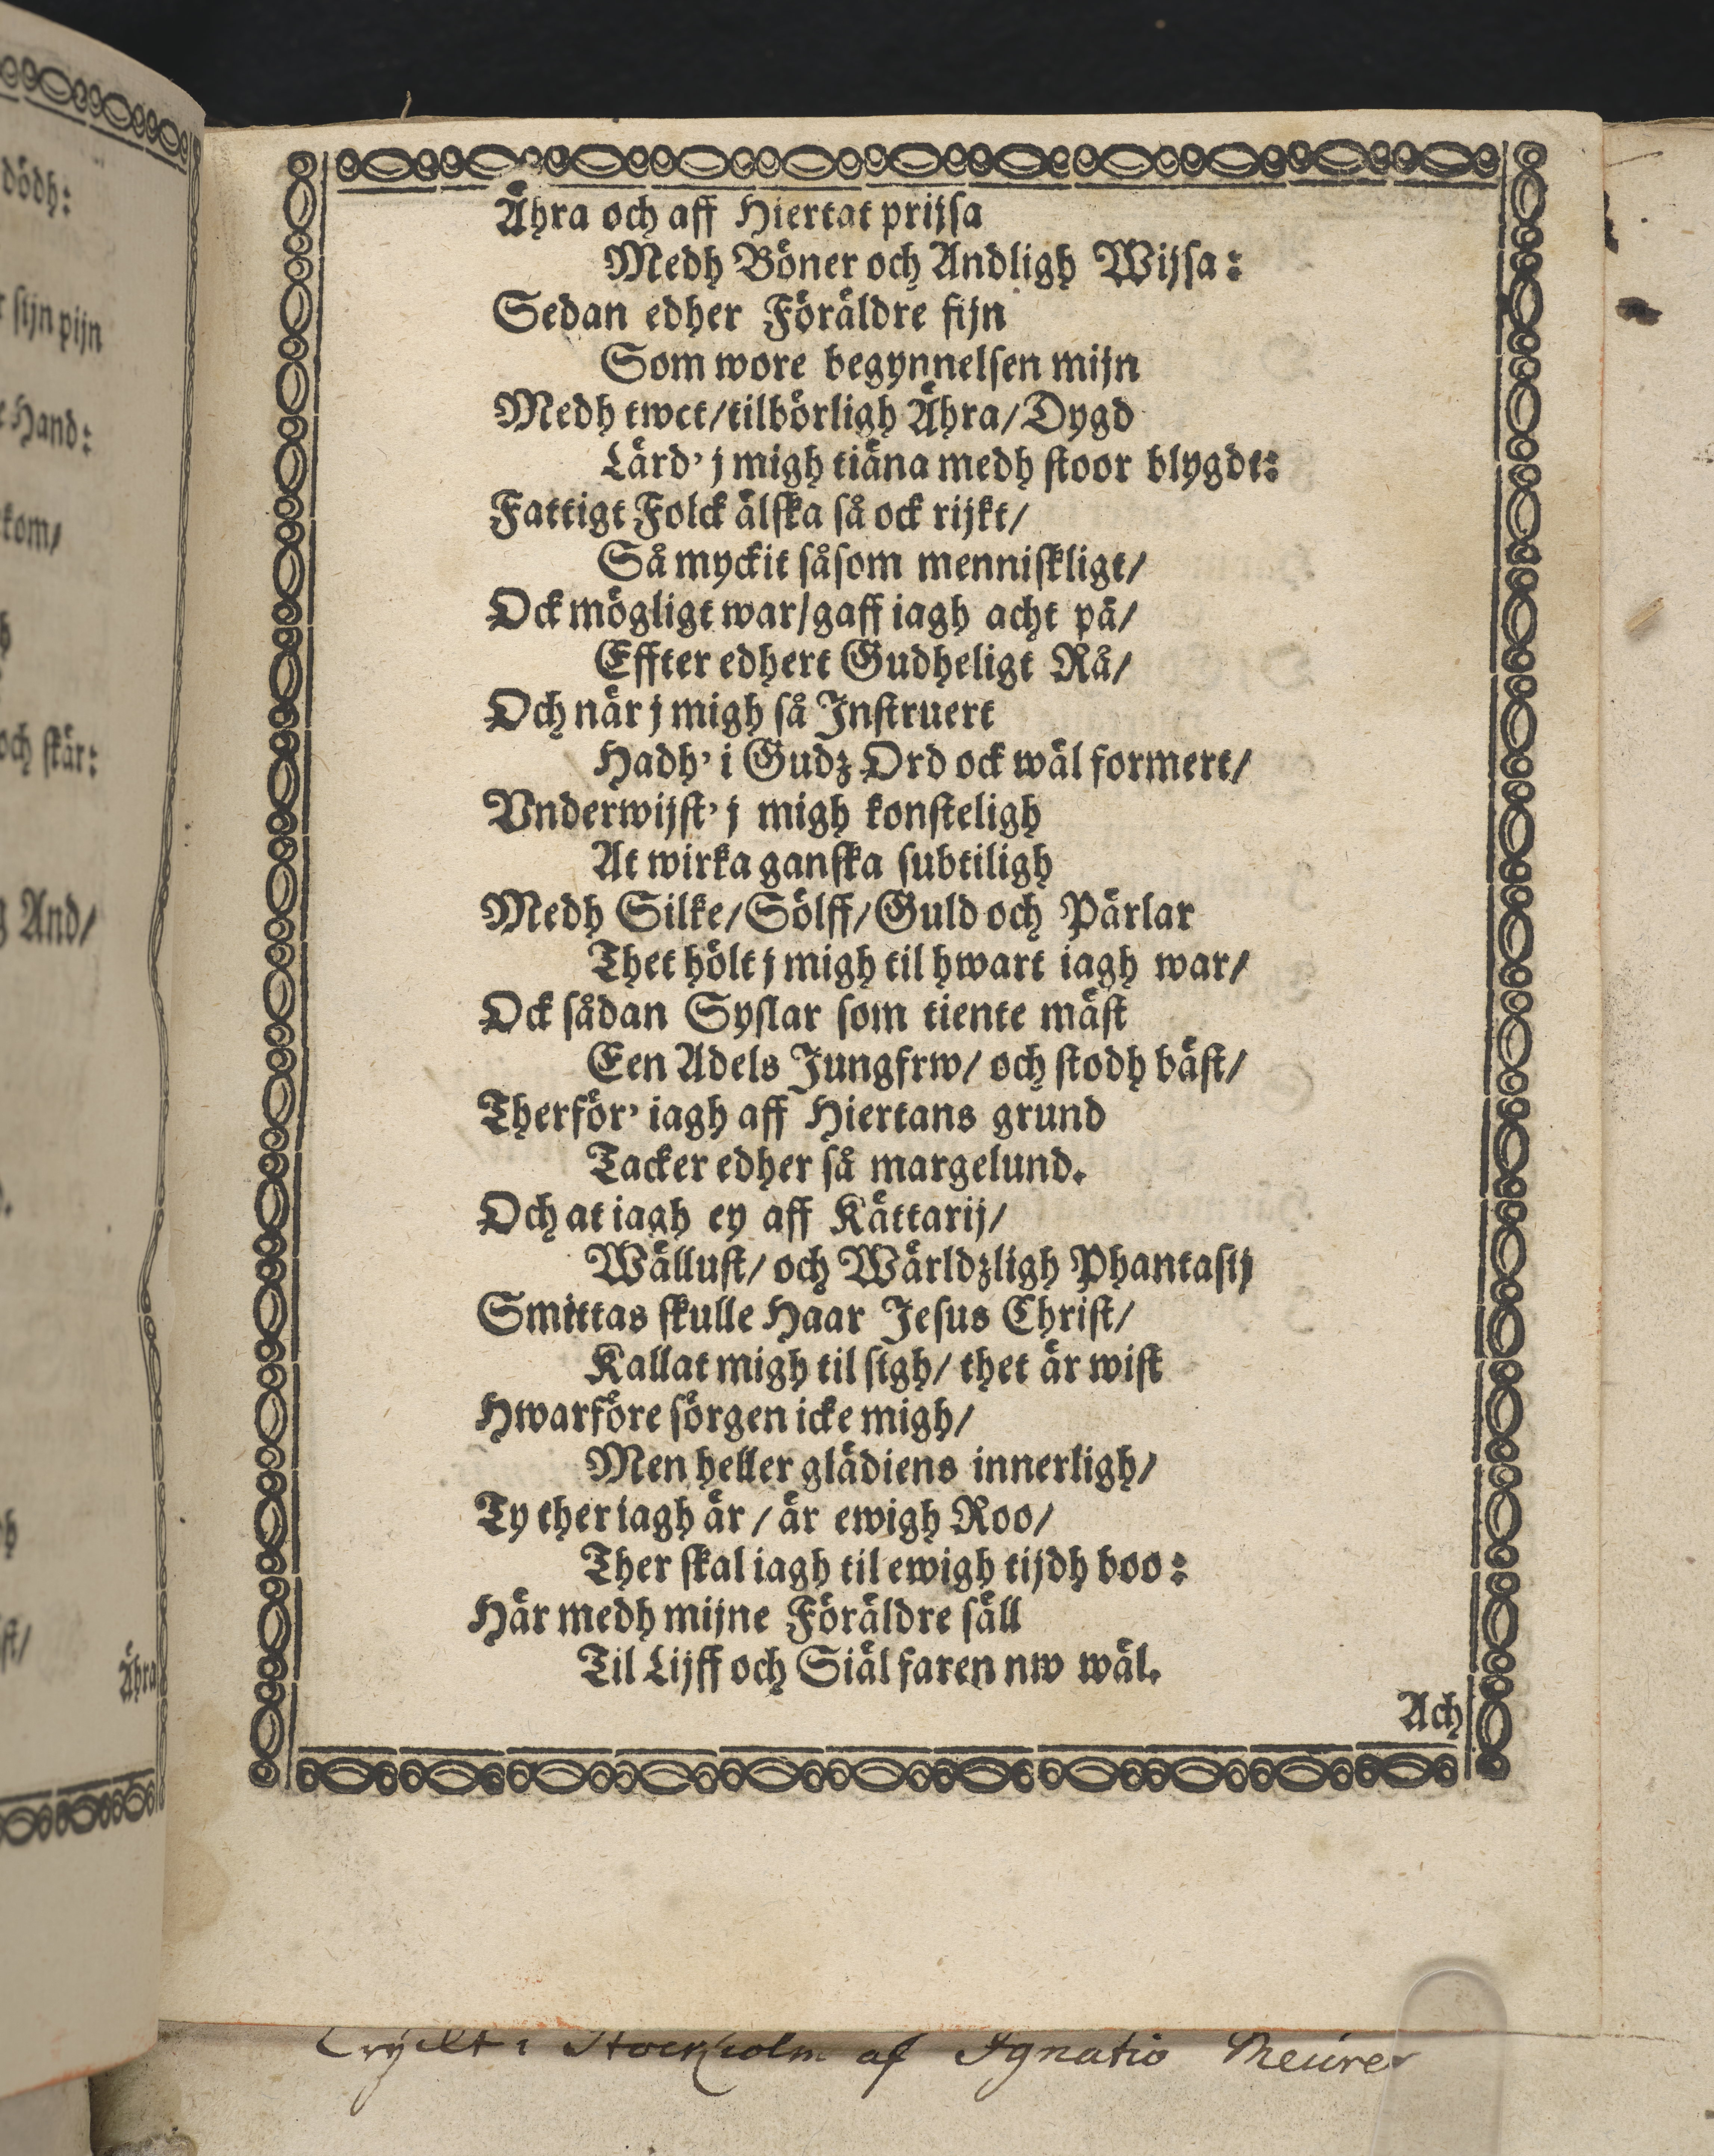 dödh:
sijn pijn
Hand:
kom/
och skär:
And/
Ähra
Ähra och aff Hiertat prijsa
Medh Böner och Andligh Wijsa:
Sedan edher Föräldre fijn
Som wore begynnelsen mijn
Medh twct/tilbörligh Ähra/Dygd
Lärd' j migh tiäna medh stoor blygdt:
Fattigt Folck älska så ock rijkt/
Så myckit såsom menniskligt/
Ock mögligt war/gaff iagh acht på/
Effter edhert Gudheligt Rå/
Och när j migh så Instruert
Hadh' i Gudz Ord ock wäl formert/
Vnderwijst' j migh konsteligh
At wirka ganska subtiligh
Medh Silke/Sölff/Guld och Pärlar
Thet hölt j migh til hwart iagh war/
Ock sådan Syslar som tiente mäst
Een Adels Jungfrw/ och stodh bäst/
Therför' iagh aff Hiertans grund
Tacker edher så margelund.
Och at iagh ey aff Kättarij/
Wällust/ och Wärldzligh Phantasij
Smittas skulle Haar Jesus Christ/
Kallat migh til sigh/ thet är wist
Hwarföre sörgen icke migh/
Men heller glädiens innerligh/
Ty ther iagh är/ är ewigh Roo/
Ther skal iagh til ewigh tijdh boo:
Här medh mijne Föräldre säll
Til Lijff och Siäl faren nw wäl.
Ach
Tryckt i Stockholm af Ignatio Meurer